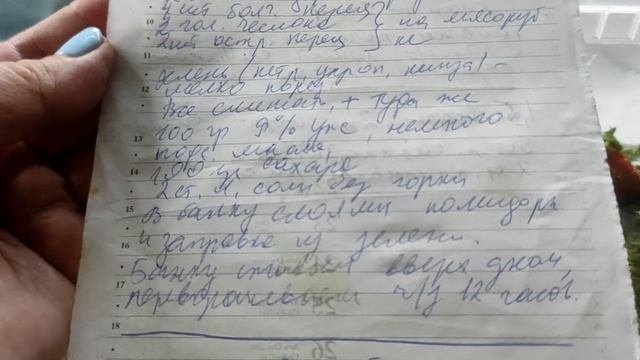 4 шт болг. перец
10 2 гол. чеснока } на мясоруб
2 шт остр. перец } ке
11
зелень (петр, укроп, кинза) -
12 мелко порез.
Все смешать, + туда же
13 100 гр 9% укс, немного
подс. масла,
14 100 гр сахара
2 ст. л. соли без горки
15 В банку слоями помидоры
и заправка из зелени.
16
Банку ставим вверх дном,
переворачиваем ч/з 12 часов.
18
26